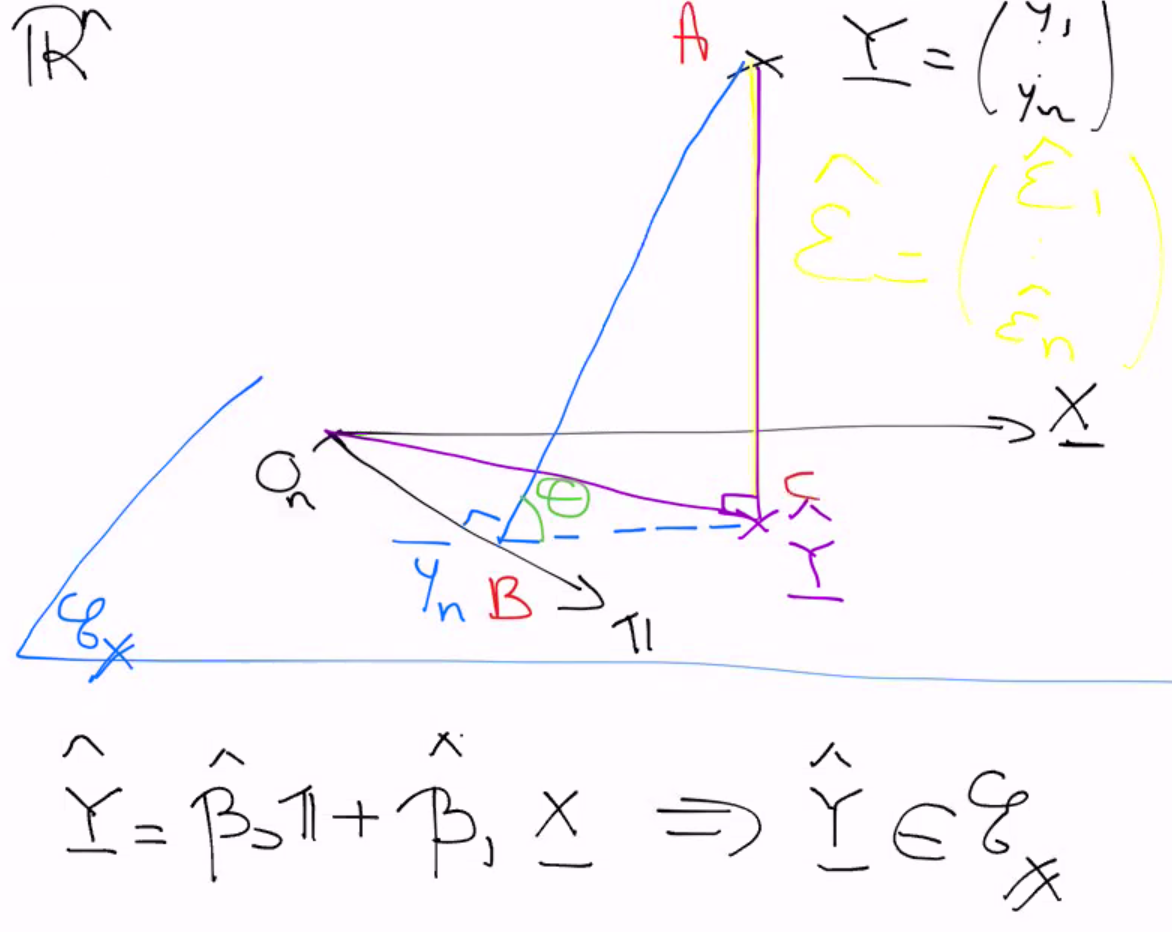 ℝⁿ
A
Y = (y₁ ⋮ yₙ)
ε̂ = (ε̂₁ ⋮ ε̂ₙ)
X
Oₙ
θ
C
Ŷ
ȳₙ B
𝟙
𝓔_X
Ŷ = β̂₀𝟙 + β̂₁ X ⇒ Ŷ ∈ 𝓔_X